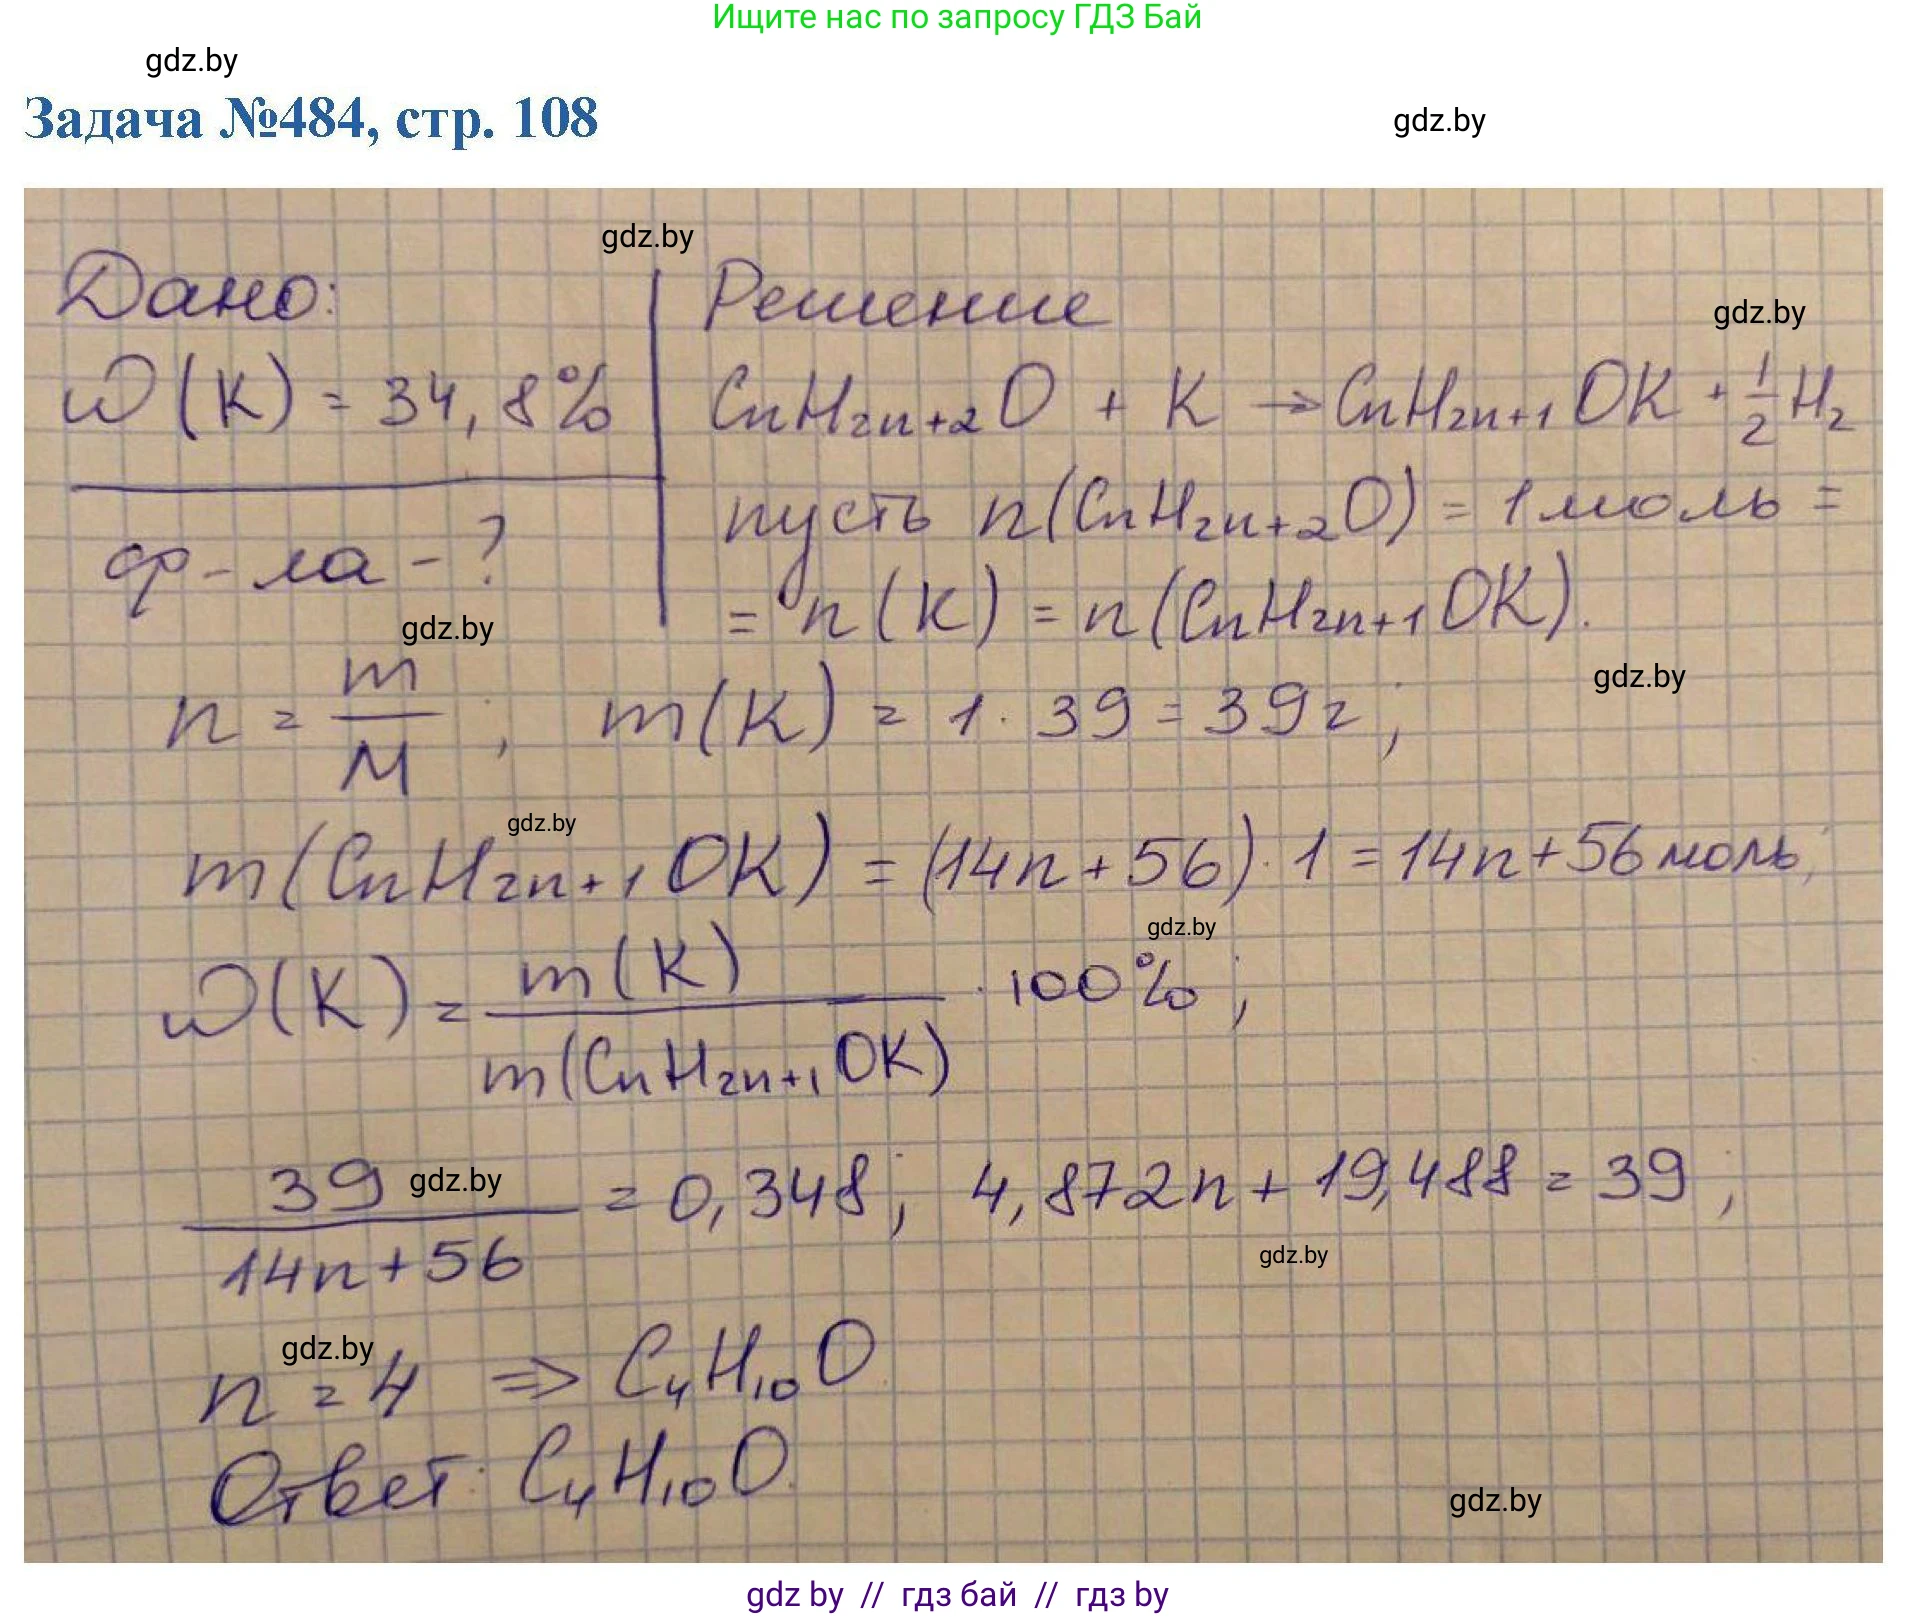 Ищите нас по запросу ГДЗ Бай
gdz.by
Задача №484, стр. 108
gdz.by
gdz.by
Дано:
Решение
gdz.by
ω(K) = 34,8%
CnH2n+2O + K → CnH2n+1OK + 1/2 H2
пусть n(CnH2n+2O) = 1 моль =
ф-ла - ?
= n(K) = n(CnH2n+1OK).
gdz.by
gdz.by
n = m/M ; m(K) = 1 · 39 = 39г ;
gdz.by
m(CnH2n+1OK) = (14n+56) · 1 = 14n+56 моль;
gdz.by
ω(K) = m(K)/m(CnH2n+1OK) · 100% ;
39/(14n+56) = 0,348; 4,872n + 19,488 = 39 ;
gdz.by
gdz.by
gdz.by
n = 4 ⇒ C4H10O
Ответ: C4H10O.
gdz.by
gdz by // гдз бай // гдз by